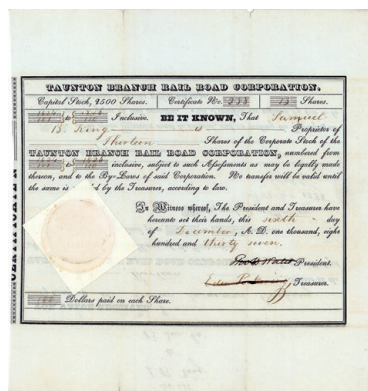 TAUNTON BRANCH RAIL ROAD CORPORATION.
Capital Stock, 2500 Shares. Certificate No. 13 Shares.
to Inclusive. BE IT KNOWN, That Samuel
B. King Proprietor of
Thirteen Shares of the Corporate Stock of the
TAUNTON BRANCH RAIL ROAD CORPORATION, numbered from
to inclusive, subject to such Assessments as may be legally made
thereon, and to the By-Laws of said Corporation. No transfer will be valid until
the same is by the Treasurer, according to law.
In Witness whereof, The President and Treasurer have
hereunto set their hands, this sixth day
of December, A. D. one thousand, eight
hundred and thirty seven.
President.
Treasurer.
Dollars paid on each Share.